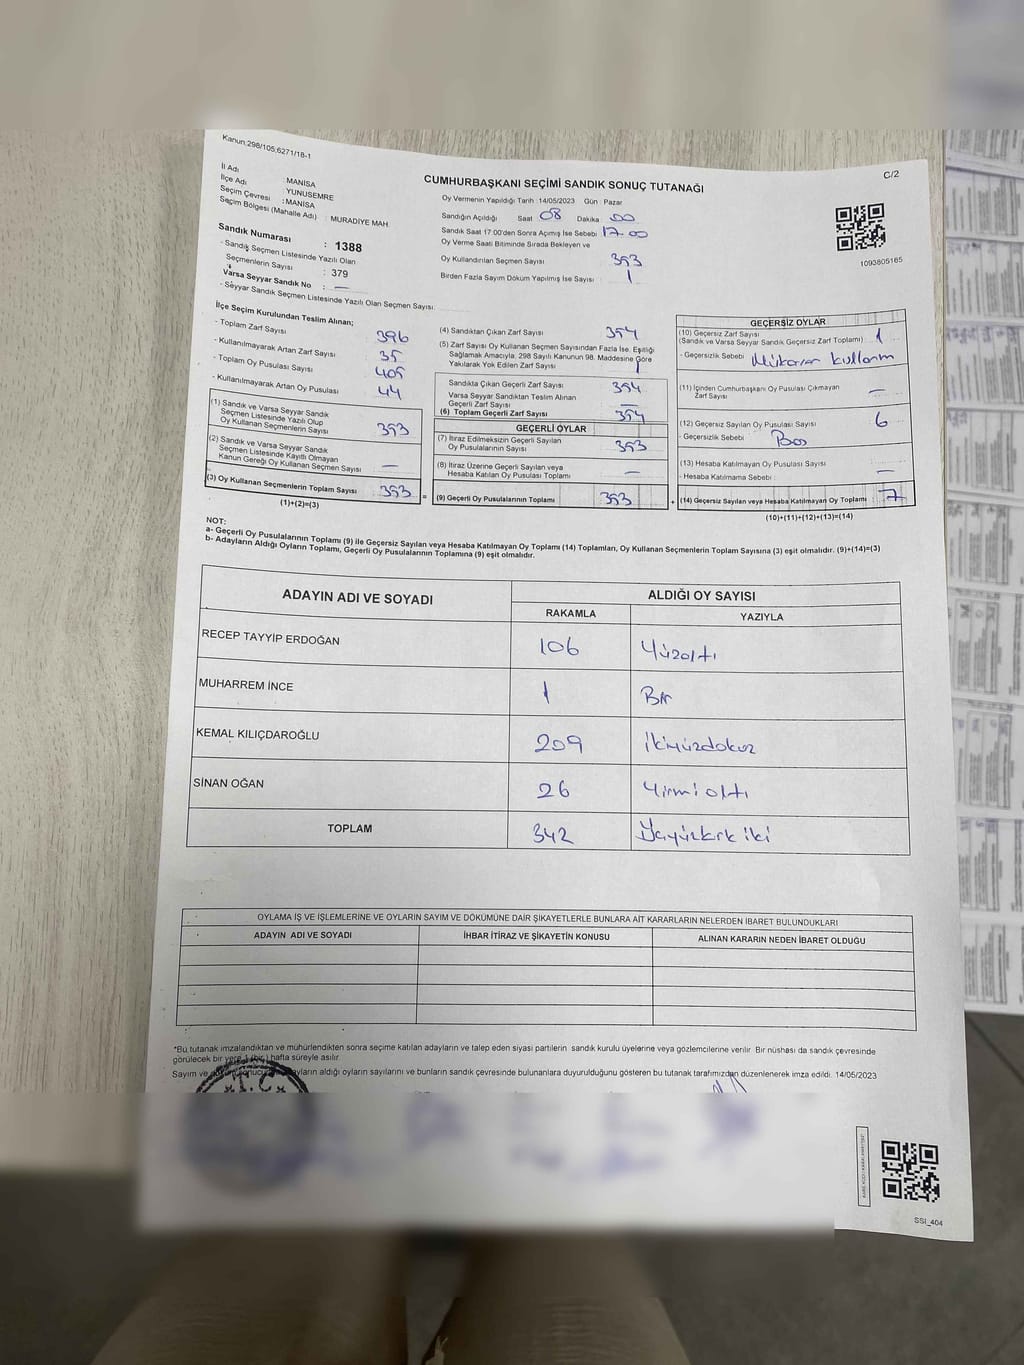 Kanun:298/105,6271/18-1
C/2
İl Adı : MANİSA
İlçe Adı : YUNUSEMRE
Seçim Çevresi : MANİSA
Seçim Bölgesi (Mahalle Adı) : MURADİYE MAH.
CUMHURBAŞKANI SEÇİMİ SANDIK SONUÇ TUTANAĞI
Oy Vermenin Yapıldığı Tarih : 14/05/2023 Gün : Pazar
Sandığın Açıldığı Saat 08 Dakika 00
Sandık Saat 17:00'den Sonra Açımış İse Sebebi 17.00
Oy Verme Saati Bitiminde Sırada Bekleyen ve
Oy Kullandırılan Seçmen Sayısı 353
Birden Fazla Sayım Döküm Yapılmış İse Sayısı 1
1093805165
Sandık Numarası : 1388
- Sandık Seçmen Listesinde Yazılı Olan
Seçmenlerin Sayısı : 379
Varsa Seyyar Sandık No : —
- Seyyar Sandık Seçmen Listesinde Yazılı Olan Seçmen Sayısı :
İlçe Seçim Kurulundan Teslim Alınan;
- Toplam Zarf Sayısı 396
- Kullanılmayarak Artan Zarf Sayısı 35
- Toplam Oy Pusulası Sayısı 405
- Kullanılmayarak Artan Oy Pusulası 44
(1) Sandık ve Varsa Seyyar Sandık
Seçmen Listesinde Yazılı Olup
Oy Kullanan Seçmenlerin Sayısı 353
(2) Sandık ve Varsa Seyyar Sandık
Seçmen Listesinde Kayıtlı Olmayan
Kanun Gereği Oy Kullanan Seçmen Sayısı —
(3) Oy Kullanan Seçmenlerin Toplam Sayısı 353 =
(1)+(2)=(3)
(4) Sandıktan Çıkan Zarf Sayısı 354
(5) Zarf Sayısı Oy Kullanan Seçmen Sayısından Fazla İse, Eşitliği
Sağlamak Amacıyla, 298 Sayılı Kanunun 98. Maddesine Göre
Yakılarak Yok Edilen Zarf Sayısı 1
Sandıkta Çıkan Geçerli Zarf Sayısı 354
Varsa Seyyar Sandıktan Teslim Alınan
Geçerli Zarf Sayısı —
(6) Toplam Geçerli Zarf Sayısı 354
GEÇERLİ OYLAR
(7) İtiraz Edilmeksizin Geçerli Sayılan
Oy Pusulalarının Sayısı 353
(8) İtiraz Üzerine Geçerli Sayılan veya
Hesaba Katılan Oy Pusulası Toplamı —
(9) Geçerli Oy Pusulalarının Toplamı 353 +
GEÇERSİZ OYLAR
(10) Geçersiz Zarf Sayısı
(Sandık ve Varsa Seyyar Sandık Geçersiz Zarf Toplamı) 1
- Geçersizlik Sebebi : Mükerrer kullanım
(11) İçinden Cumhurbaşkanı Oy Pusulası Çıkmayan
Zarf Sayısı —
(12) Geçersiz Sayılan Oy Pusulası Sayısı 6
- Geçersizlik Sebebi : Boş
(13) Hesaba Katılmayan Oy Pusulası Sayısı
- Hesaba Katılmama Sebebi : —
(14) Geçersiz Sayılan veya Hesaba Katılmayan Oy Toplamı : 7
(10)+(11)+(12)+(13)=(14)
NOT:
a- Geçerli Oy Pusulalarının Toplamı (9) ile Geçersiz Sayılan veya Hesaba Katılmayan Oy Toplamı (14) Toplamları, Oy Kullanan Seçmenlerin Toplam Sayısına (3) eşit olmalıdır. (9)+(14)=(3)
b- Adayların Aldığı Oyların Toplamı, Geçerli Oy Pusulalarının Toplamına (9) eşit olmalıdır.
ADAYIN ADI VE SOYADI ALDIĞI OY SAYISI
RAKAMLA YAZIYLA
RECEP TAYYİP ERDOĞAN 106 Yüzaltı
MUHARREM İNCE 1 Bir
KEMAL KILIÇDAROĞLU 209 ikiyüzdokuz
SİNAN OĞAN 26 Yirmialtı
TOPLAM 342 Üçyüzkırk iki
OYLAMA İŞ VE İŞLEMLERİNE VE OYLARIN SAYIM VE DÖKÜMÜNE DAİR ŞİKAYETLERLE BUNLARA AİT KARARLARIN NELERDEN İBARET BULUNDUKLARI
ADAYIN ADI VE SOYADI İHBAR İTİRAZ VE ŞİKAYETİN KONUSU ALINAN KARARIN NEDEN İBARET OLDUĞU
*Bu tutanak imzalandıktan ve mühürlendikten sonra seçime katılan adayların ve talep eden siyasi partilerin sandık kurulu üyelerine veya gözlemcilerine verilir. Bir nüshası da sandık çevresinde
görülecek bir yere 1 (bir) hafta süreyle asılır.
Sayım ve aldığı oyların sayılarını ve bunların sandık çevresinde bulunanlara duyurulduğunu gösteren bu tutanak tarafımızdan düzenlenerek imza edildi. 14/05/2023
T.C.
SSI_404